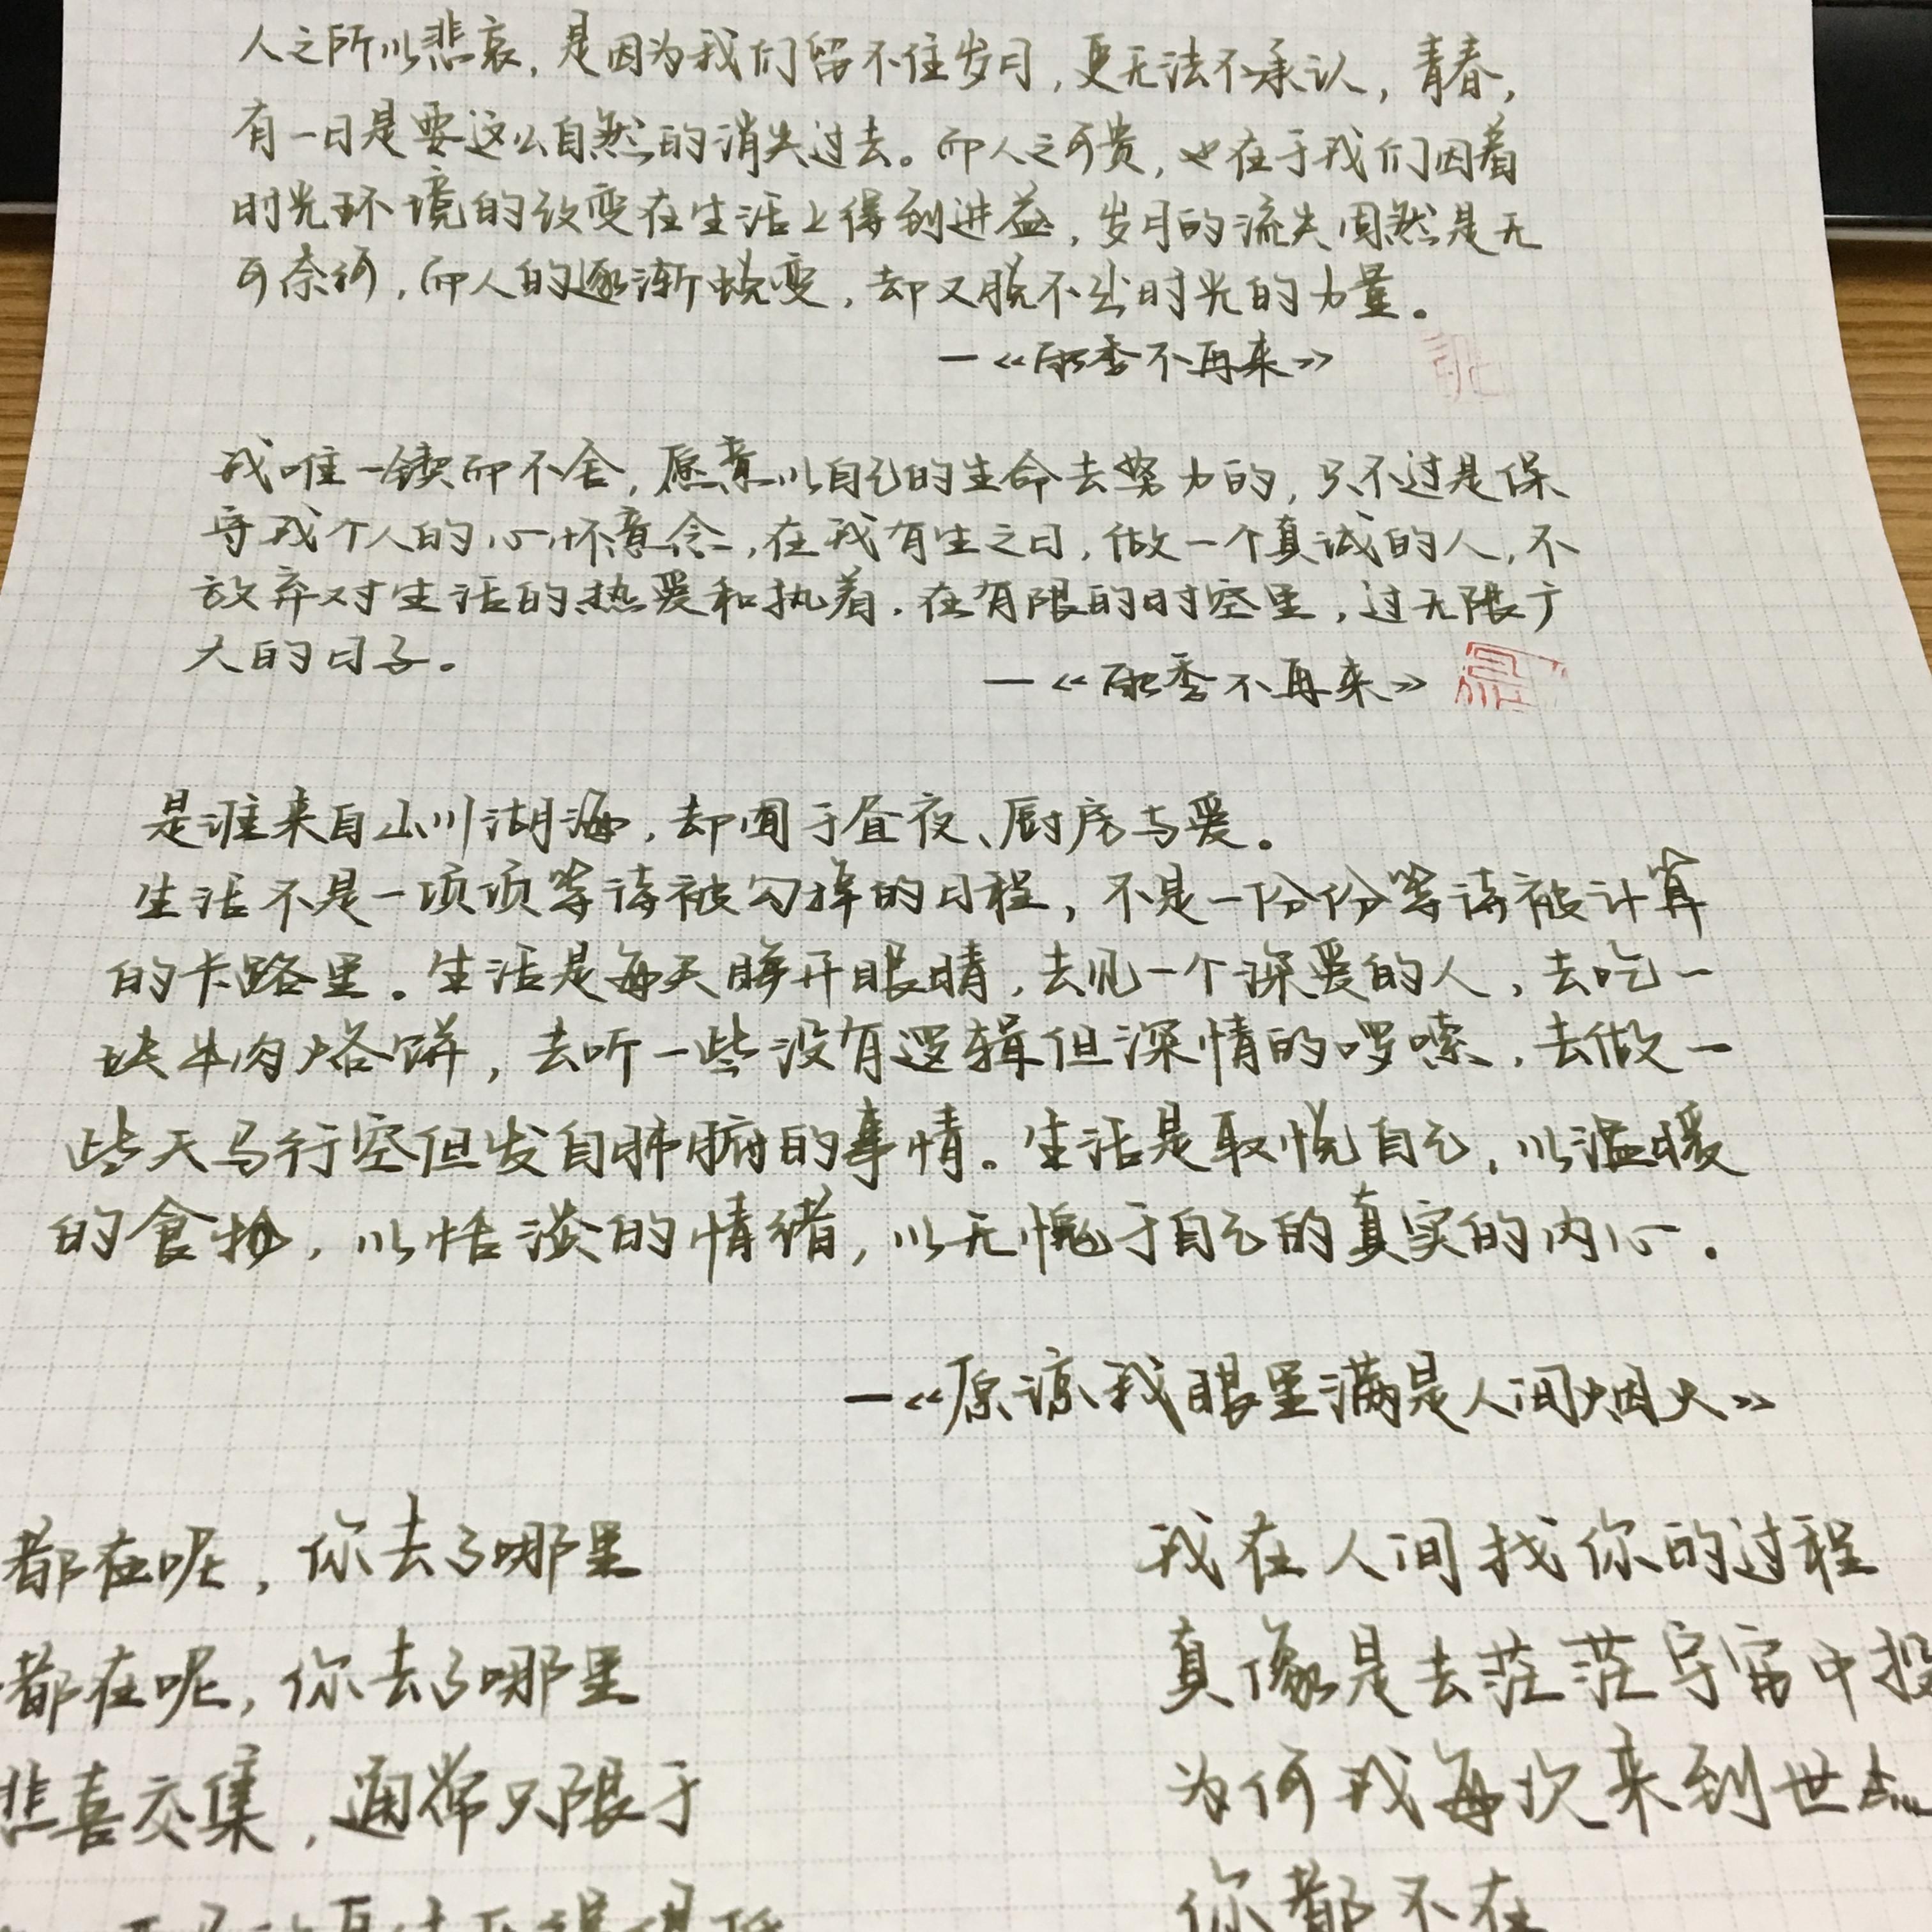 人之所以悲哀，是因为我们留不住岁月，更无法不承认，青春，
有一日是要这么自然的消失过去。而人之可贵，也在于我们因着
时光环境的改变在生活上得到进益，岁月的流失固然是无
可奈何，而人的逐渐蜕变，却又脱不出时光的力量。
—《雨季不再来》
我唯一锲而不舍，愿意以自己的生命去努力的，只不过是保
守我个人的心怀意念，在我有生之日，做一个真诚的人，不
放弃对生活的热爱和执着，在有限的时空里，过无限广
大的日子。
—《雨季不再来》
是谁来自山川湖海，却囿于昼夜、厨房与爱。
生活不是一项项等待被勾掉的日程，不是一份份等待被计算
的卡路里。生活是每天睁开眼睛，去见一个深爱的人，去吃一
块牛肉烙饼，去听一些没有逻辑但深情的啰嗦，去做一
些天马行空但发自肺腑的事情。生活是取悦自己，以温暖
的食物，以恬淡的情绪，以无愧于自己的真实的内心。
—《原谅我眼里满是人间烟火》
都在呢，你去了哪里
都在呢，你去了哪里
悲喜交集，通常只限于
我在人间找你的过程
真像是去茫茫宇宙中投
为何我每次来到世上
你都不在